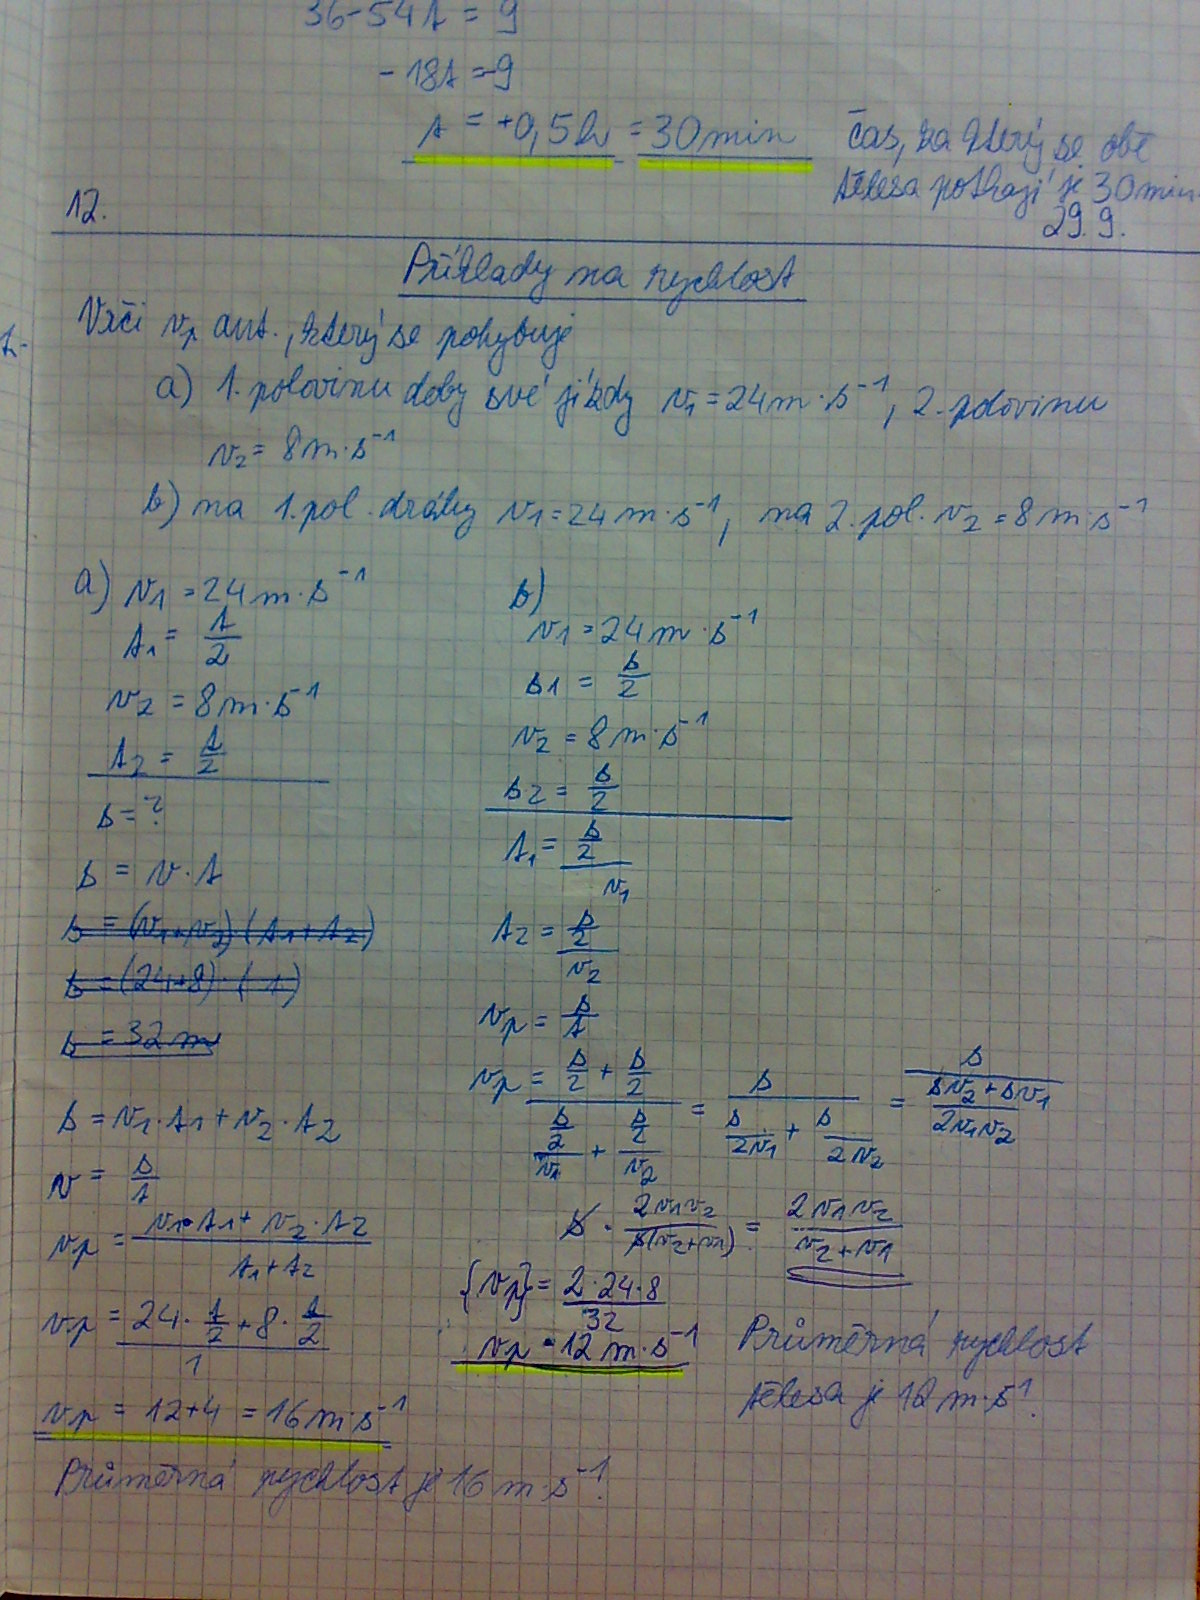 36-54t = 9
-18t = -9
t = +0,5h = 30min
čas, za který se obě
tělesa potkají je 30min
12.
29. 9.
Příklady na rychlost
Urči vp aut., který se pohybuje
a) 1. polovinu doby své jízdy v1 = 24m·s⁻¹, 2. polovinu
v2 = 8m·s⁻¹
b) na 1. pol. dráhy v1 = 24m·s⁻¹, na 2. pol. v2 = 8m·s⁻¹
a) v1 = 24m·s⁻¹
t1 = t/2
v2 = 8m·s⁻¹
t2 = t/2
s = ?
s = v·t
s = (v1+v2)·(t1+t2)
s = (24+8)·(1)
s = 32m
s = v1·t1 + v2·t2
v = s/t
vp = (v1·t1 + v2·t2)/(t1+t2)
vp = (24·t/2 + 8·t/2)/1
vp = 12+4 = 16m·s⁻¹
Průměrná rychlost je 16m·s⁻¹.
b)
v1 = 24m·s⁻¹
s1 = s/2
v2 = 8m·s⁻¹
s2 = s/2
t1 = (s/2)/v1
t2 = (s/2)/v2
vp = s/t
vp = (s/2 + s/2)/((s/2)/v1 + (s/2)/v2) = s/(s/2v1 + s/2v2) = s/((sv2+sv1)/2v1v2)
s · 2v1v2/(s(v2+v1)) = 2v1v2/(v2+v1)
{vp} = 2·24·8/32
vp = 12m·s⁻¹
Průměrná rychlost
tělesa je 12m·s⁻¹.